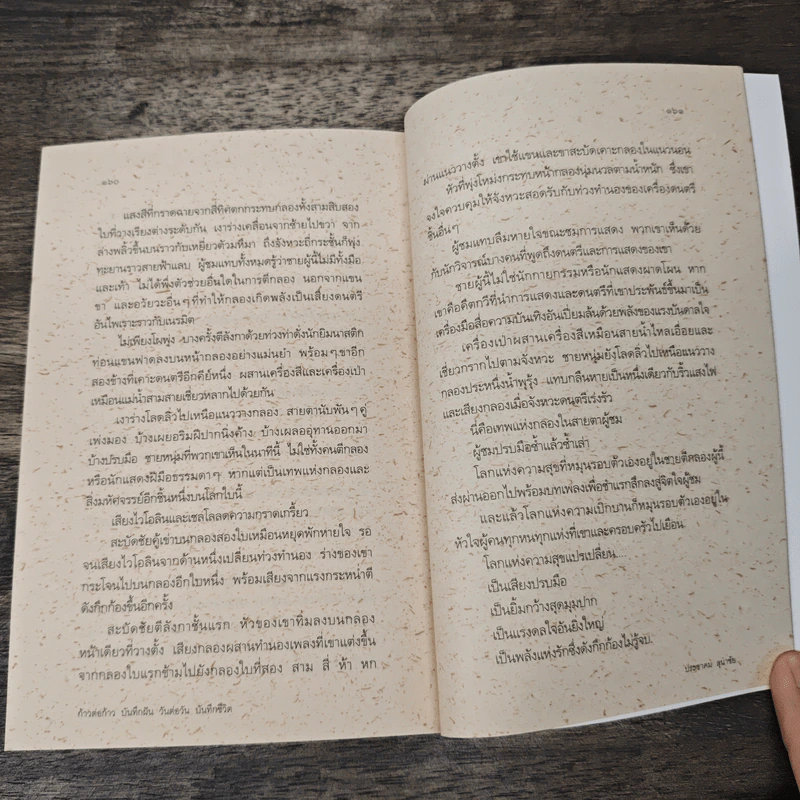 ๑๖๐
แสงสีที่กราดฉายจากสีทิศตกกระทบกลองทั้งสามสิบสอง
ใบที่วางเรียงต่างระดับกัน เงาร่างเคลื่อนจากซ้ายไปขวา จาก
ล่างพลิ้วขึ้นบนราวกับเหยี่ยวตัวมหึมา ถึงจังหวะถี่กระชั้นก็พุ่ง
ทะยานราวสายฟ้าแลบ ผู้ชมแทบทั้งหมดรู้ว่าชายผู้นี้ไม่มีทั้งมือ
และเท้า ไม่ได้พึ่งตัวช่วยอื่นใดในการตีกลอง นอกจากแขน
ขา และอวัยวะอื่นๆที่ทำให้กลองเกิดพลังเป็นเสียงดนตรี
อันไพเราะราวกับเนรมิต
ไม่เพียงโผพุ่ง บางครั้งตีลังกาด้วยท่วงท่าดั่งนักยิมนาสติก
ท่อนแขนฟาดลงบนหน้ากลองอย่างแม่นยำ พร้อมๆขาอีก
สองข้างที่เคาะดนตรีอีกคีย์หนึ่ง ผสานเครื่องสีและเครื่องเป่า
เหมือนแม่น้ำสามสายเชี่ยวหลากไปด้วยกัน
เงาร่างโลดลิ่วไปเหนือแนววางกลอง สายตานับพันๆคู่
เพ่งมอง บ้างเผยอริมฝีปากนิ่งค้าง บ้างเผลออุทานออกมา
บ้างปรบมือ ชายหนุ่มที่พวกเขาเห็นในนาทีนี้ ไม่ใช่ทั้งคนตีกลอง
หรือนักแสดงฝีมือธรรมดาๆ หากแต่เป็นเทพแห่งกลองและ
สิ่งมหัศจรรย์อีกชิ้นหนึ่งบนโลกใบนี้
เสียงไวโอลินและเชลโลลดความกราดเกรี้ยว
สะบัดชัยคู้เข่าบนกลองสองใบเหมือนหยุดพักหายใจ รอ
จนเสียงไวโอลินจากด้านหนึ่งเปลี่ยนท่วงทำนอง ร่างของเขา
กระโจนไปบนกลองอีกใบหนึ่ง พร้อมเสียงจากแรงกระหน่ำตี
ดังกึกก้องขึ้นอีกครั้ง
สะบัดชัยตีลังกาชั้นแรก หัวของเขาทิ่มลงบนกลอง
หน้าเดียวที่วางตั้ง เสียงกลองผสานทำนองเพลงที่เขาแต่งขึ้น
จากกลองใบแรกข้ามไปยังกลองใบที่สอง สาม สี่ ห้า หก
ก้าวต่อก้าว บันทึกฝัน วันต่อวัน บันทึกชีวิต
๑๖๑
ผ่านแนววางตั้ง เขาใช้แขนและขาสะบัดเคาะกลองในแนวนอน
หัวที่พุ่งโหม่งกระทบหน้ากลองนุ่มนวลตามน้ำหนัก ซึ่งเขา
จงใจควบคุมให้จังหวะสอดรับกับท่วงทำนองของเครื่องดนตรี
ชิ้นอื่นๆ
ผู้ชมแทบลืมหายใจขณะชมการแสดง พวกเขาเห็นด้วย
กับนักวิจารณ์บางคนที่พูดถึงดนตรีและการแสดงของเขา
ชายผู้นี้ไม่ใช่นักกายกรรมหรือนักแสดงผาดโผน หาก
เขาคือคีตกวีที่นำการแสดงและดนตรีที่เขาประพันธ์ขึ้นมาเป็น
เครื่องมือสื่อความบันเทิงอันเปี่ยมล้นด้วยพลังของแรงบันดาลใจ
เครื่องเป่าผสานเครื่องสีเหมือนสายน้ำไหลเอื่อยและ
เชี่ยวกรากไปตามจังหวะ ชายหนุ่มยังโลดลิ่วไปเหนือแนววาง
กลองประหนึ่งน้ำพุรุ้ง แทบกลืนหายเป็นหนึ่งเดียวกับริ้วแสงไฟ
และเสียงกลองเมื่อจังหวะดนตรีเร่งรัว
นี่คือเทพแห่งกลองในสายตาผู้ชม
ผู้ชมปรบมือซ้ำแล้วซ้ำเล่า
โลกแห่งความสุขที่หมุนรอบตัวเองอยู่ในชายตีกลองผู้นี้
ส่งผ่านออกไปพร้อมบทเพลงเพื่อชำแรกลึกลงสู่จิตใจผู้ชม
และแล้วโลกแห่งความเบิกบานก็หมุนรอบตัวเองอยู่ใน
หัวใจผู้คนทุกหนทุกแห่งที่เขาและครอบครัวไปเยือน
โลกแห่งความสุขแปรเปลี่ยน....
เป็นเสียงปรบมือ
เป็นยิ้มกว้างสุดมุมปาก
เป็นแรงดลใจอันยิ่งใหญ่
เป็นพลังแห่งรักซึ่งดังกึกก้องไม่รู้จบ
ประชาคม ลุนาชัย